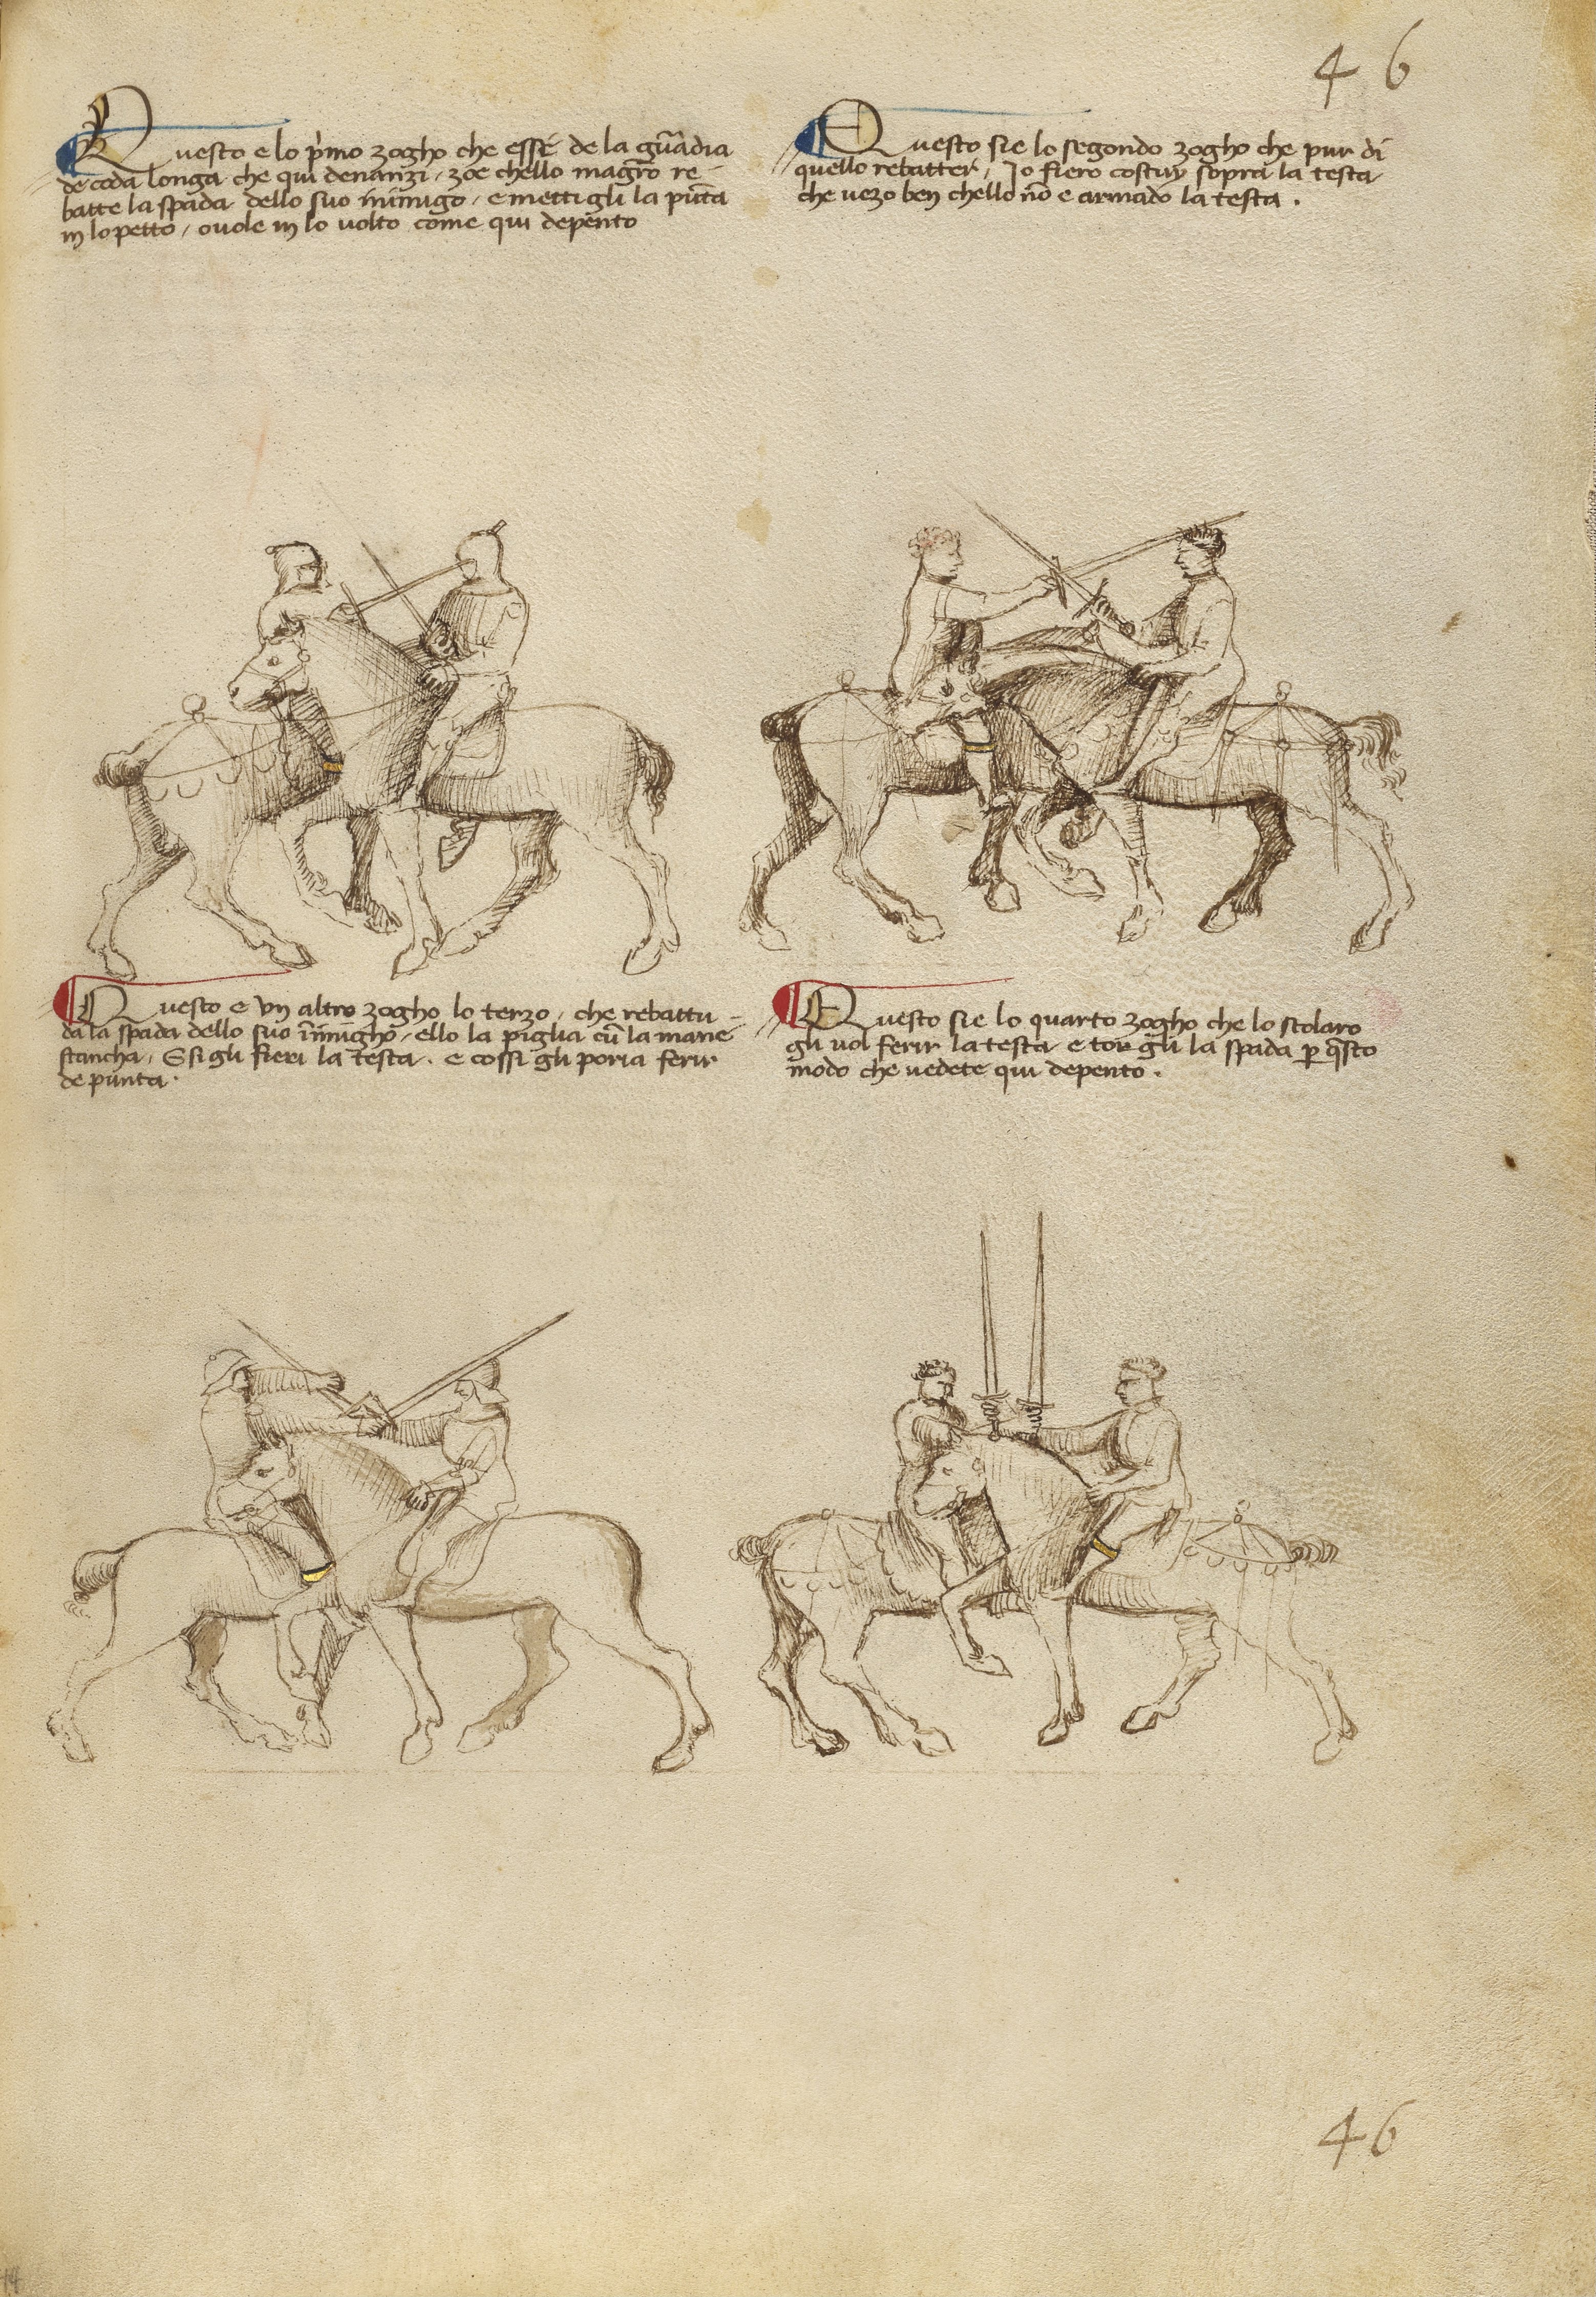 46
Questo e lo p'mo zogho che esse de la guādia
de coda longa che qui denanzi, zoe chello magrō re-
batte la spada dello suo inimigo, e mettigli la pūta
in lo petto, ovole in lo volto come qui depento
Questo sie lo segondo zogho che pur di
quello rebatter, Io fiero costuy sopra la testa
che vezo ben chello nō e armado la testa.
Questo e un altro zogho lo terzo, che rebattu-
da la spada dello suo inimigho, ello la piglia cū la mane
stancha, E si gli fieri la testa. e cossi gli poria ferir
de punta.
Questo sie lo quarto zogho che lo scolaro
gli vol ferir la testa e tor gli la spada p q̄sto
modo che vedete qui depento.
46